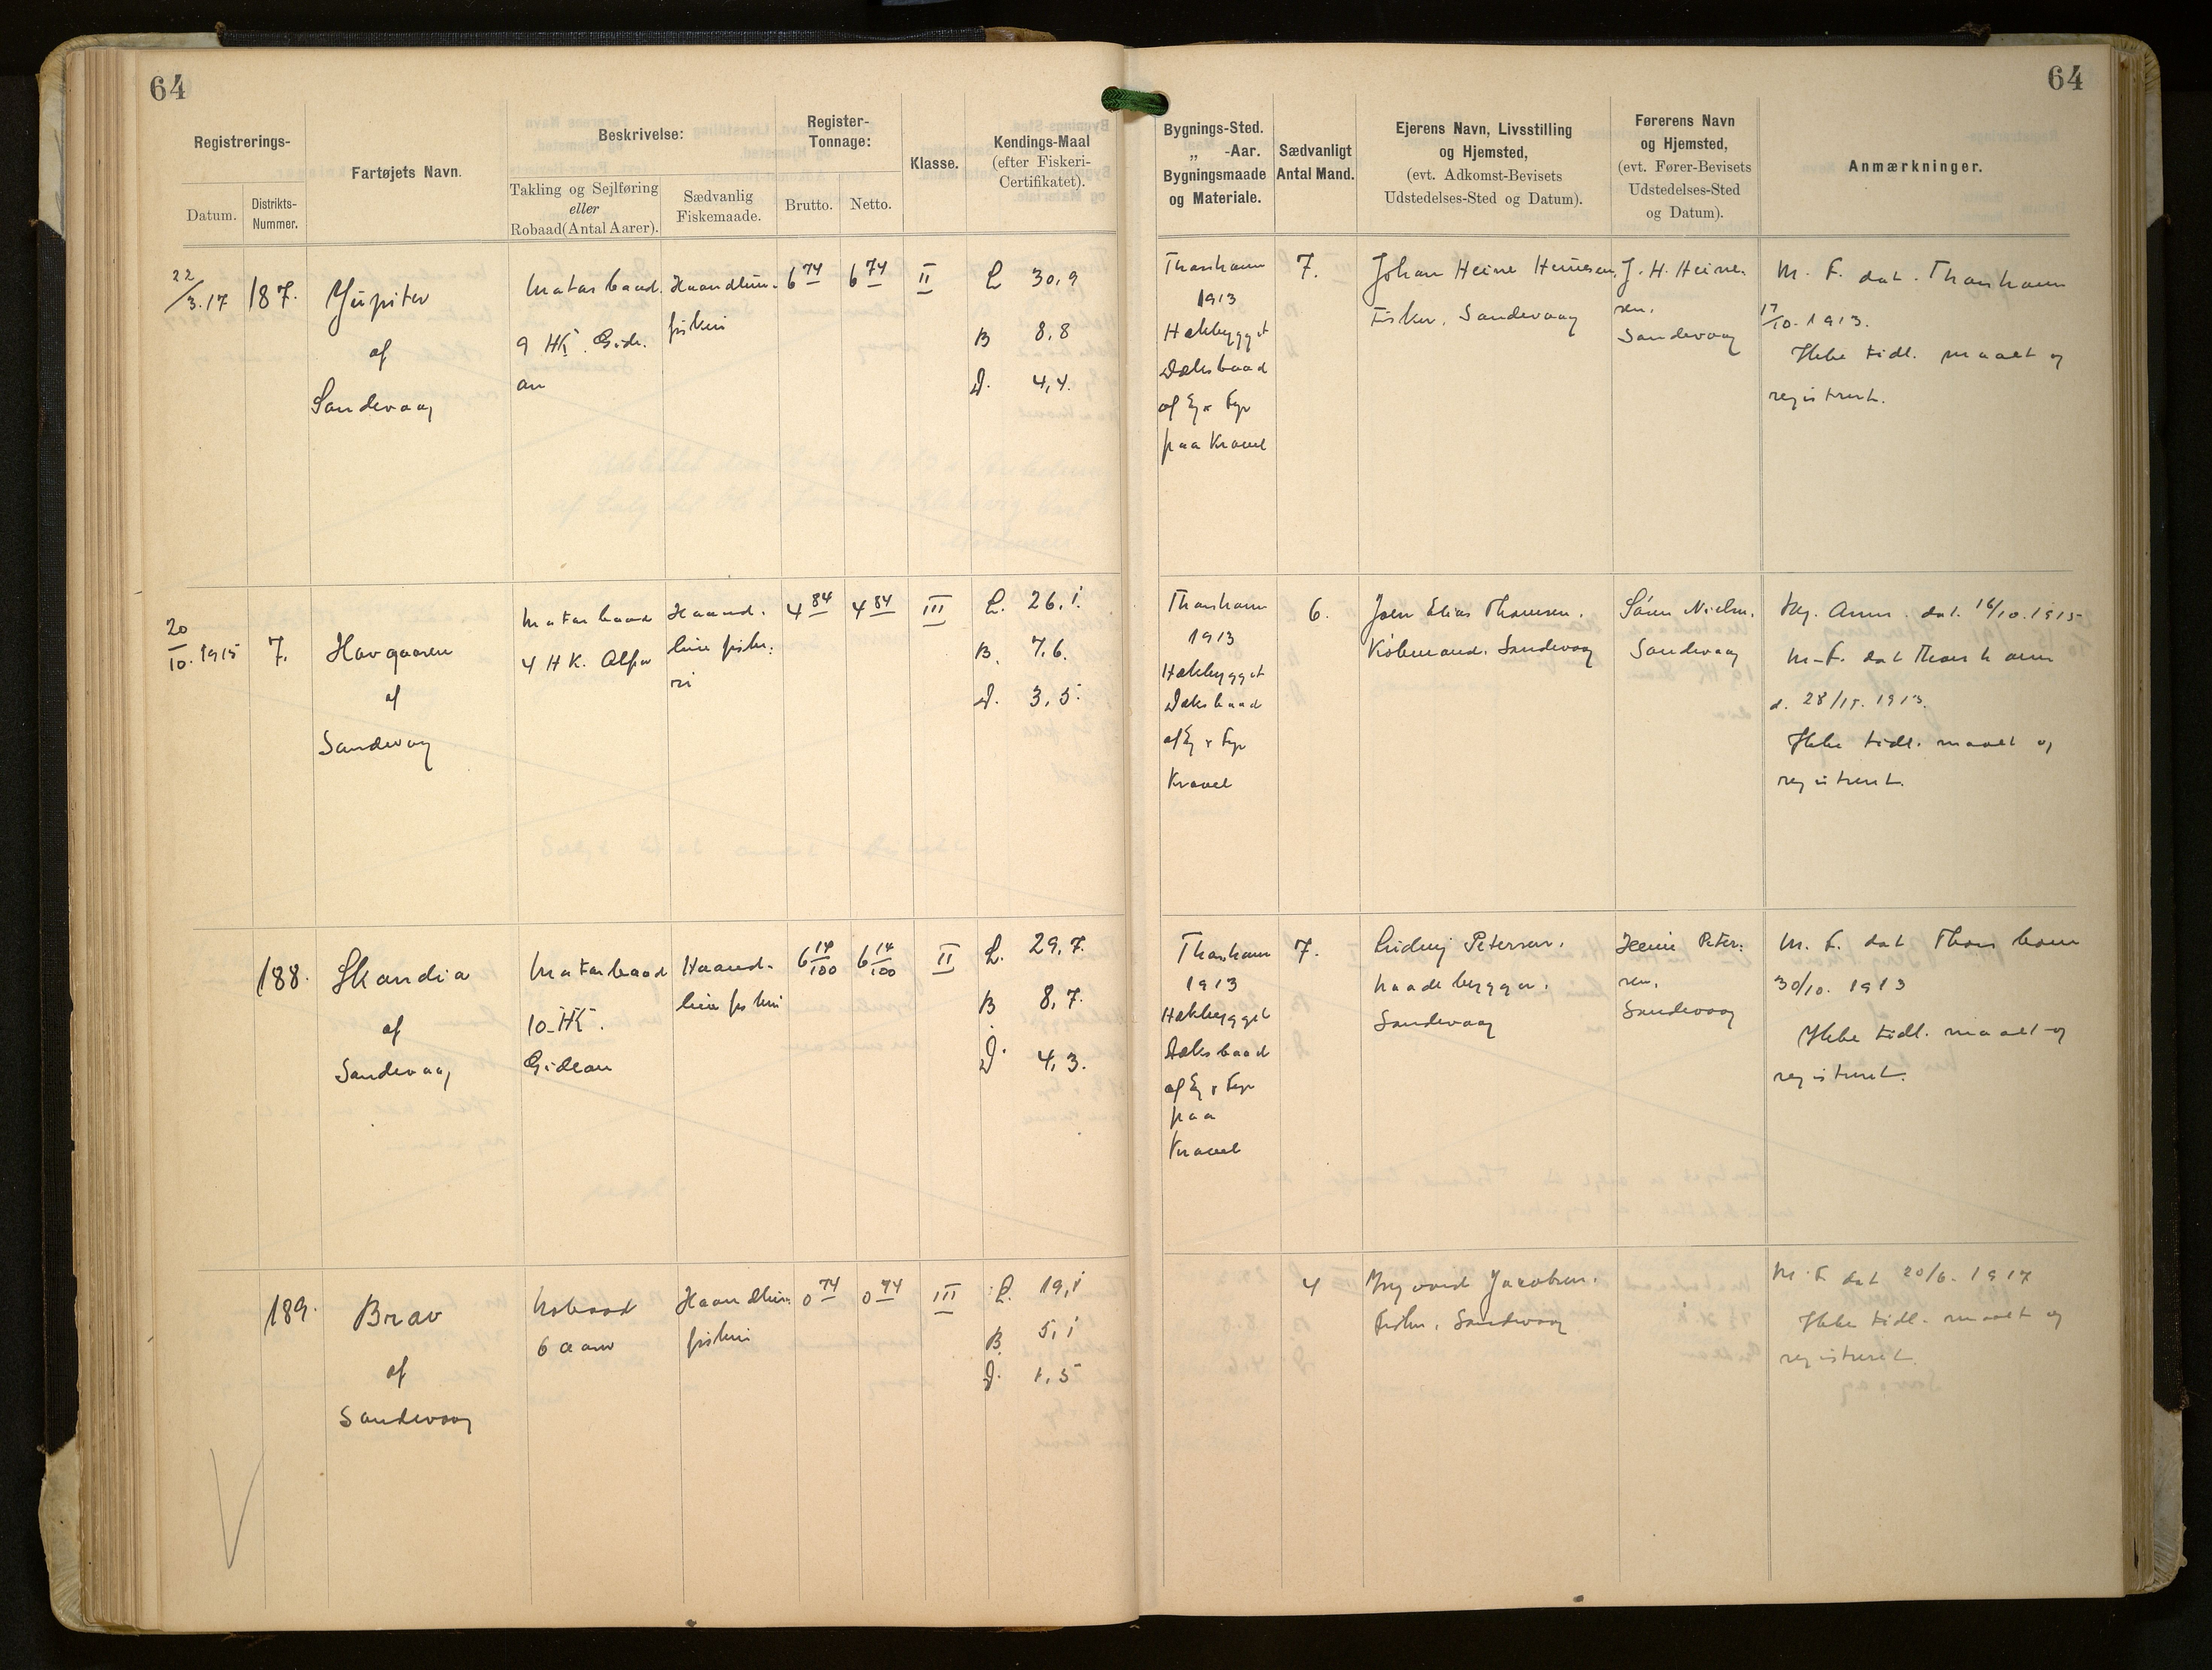 64
64
Registrerings-
Datum.
Distrikts-
Nummer.
Fartøjets Navn.
Beskrivelse:
Takling og Sejlføring
eller
Robaad(Antal Aarer).
Sædvanlig
Fiskemaade.
Register-
Tonnage:
Brutto.
Netto.
Klasse.
Kendings-Maal
(efter Fiskeri-
Certifikatet).
Bygnings-Sted.
„ -Aar.
Bygningsmaade
og Materiale.
Sædvanligt
Antal Mand.
Ejerens Navn, Livsstilling
og Hjemsted,
(evt. Adkomst-Bevisets
Udstedelses-Sted og Datum).
Førerens Navn
og Hjemsted,
(evt. Fører-Bevisets
Udstedelses-Sted
og Datum).
Anmærkninger.
22/3.17
187.
Yupiter
af
Sandevaag
Motorbaad.
9 HK. Gide.
on
Haandline-
fiskeri
6 74
6 74
II
L 30,9
B 8,8
D. 4,4.
Thorshavn
1913
Hækbygget
Dæksbaad
af Eg & Fyr
paa Kravel
7.
Johan Heine Heinesen
Fisker, Sandevaag
J. H. Heine-
sen.
Sandevaag
M. F. dat. Thorshavn
17/10. 1913.
Ikke tidl. maalt og
registreret.
20/10. 1915
7.
Havgaasen
af
Sandevaag
Motorbaad
4 HK. Alfa
Haand-
line fiske-
ri
4 84
4 84
III
L. 26,1.
B. 7,6.
D. 3,5.
Thorshavn
1913
Hækbygget
Dæksbaad
af Eg & Fyr
Kravel
6.
Joen Elias Thomsen.
Købmand. Sandevaag
Sandevaag
Reg. Anm. dat. 16/10.1915
M-F. dat Thorshavn
d. 28/11. 1913.
Ikke tidl. maalt og
registreret.
188.
Skandia
af
Sandevaag
Motorbaad
10-HK.
Gideon
Haand-
line fiskeri
6 14/100
6 14/100
II
L. 29,7.
B 8,7.
D. 4,3.
Thorshavn
1913
Hækbygget
Dæksbaad
af Eg & Fyr
paa
Kravel
7.
Ludvig Petersen.
Baadebygger.
Sandevaag
Heine Peter-
sen.
Sandevaag
M. F. dat Thorshavn
30/10. 1913
Ikke tidl. maalt og
registreret.
189.
Brav
af
Sandevaag
Robaad
6 aarer
Haandline
fiskeri
0 74
0 74
III
L. 19,1
B. 5,1
D. 1,5
4
Ingvard Jacobsen.
Fisker. Sandevaag
M. F. dat 20/6. 1917
Ikke tidl. maalt og
registreret.